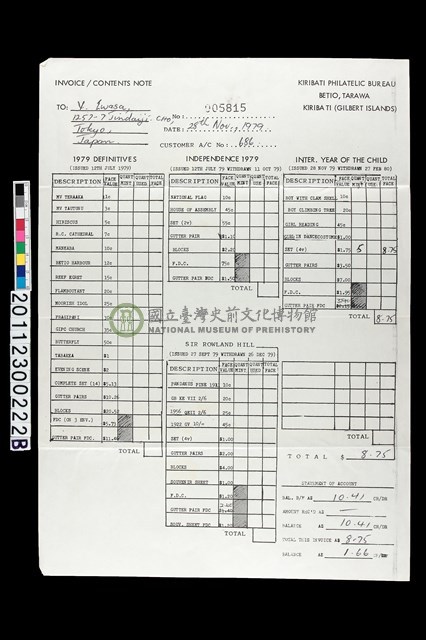 INVOICE / CONTENTS NOTE
KIRIBATI PHILATELIC BUREAU
BETIO, TARAWA
KIRIBATI (GILBERT ISLANDS)
TO: V. Iwasa,
1257-7 Jindaiji CHO,
Tokyo,
Japan
No: 005815
DATE: 28th Nov., 1979
CUSTOMER A/C No: 686
1979 DEFINITIVES
(ISSUED 12TH JULY 1979)
DESCRIPTION FACE VALUE QUANT MINT QUANT USED TOTAL FACE
MV TERAAKA 1c
MV TAUTUNU 3c
HIBISCUS 5c
R.C. CATHEDRAL 7c
MANEABA 10c
BETIO HARBOUR 12c
REEF EGRET 15c
FLAMBOYANT 20c
MOORISH IDOL 25c
FRANGIPANI 30c
GIPC CHURCH 35c
BUTTERFLY 50c
TABAKEA $1
EVENING SCENE $2
COMPLETE SET (14) $5.13
GUTTER PAIRS $10.26
BLOCKS $20.52
FDC (ON 3 ENV.) $5.73
GUTTER PAIR FDC.
TOTAL
INDEPENDENCE 1979
(ISSUED 12TH JULY 79 WITHDRAWN 11 OCT 79)
DESCRIPTION FACE VALUE QUANT MINT QUANT USED TOTAL FACE
NATIONAL FLAG 10c
HOUSE OF ASSEMBLY 45c
SET (2v) 55c
GUTTER PAIR $1.10
BLOCKS $2.20
F.D.C. 75c
GUTTER PAIR FDC $1.50
TOTAL
SIR ROWLAND HILL
(ISSUED 27 SEPT 79 WITHDRAWN 26 DEC 79)
DESCRIPTION FACE VALUE QUANT MINT QUANT USED TOTAL FACE
10c
GB KE VII 2/6 20c
1956 QEII 2/6 25c
10/- 45c
SET (4v) $1.00
GUTTER PAIRS $2.00
BLOCKS $4.00
SOUVENIR SHEET $1.00
F.D.C. $1.20
GUTTER PAIR FDC
SOUV. SHEET FDC $1.20
TOTAL
INTER. YEAR OF THE CHILD
(ISSUED 28 NOV 79 WITHDRAWN 27 FEB 80)
DESCRIPTION FACE VALUE QUANT MINT QUANT USED TOTAL FACE
BOY WITH CLAM SHELL 10c
BOY CLIMBING TREE 20c
GIRL READING 45c
$1.00
SET (4v) $1.75 5 8.75
GUTTER PAIRS $3.50
BLOCKS $7.00
F.D.C. $1.95
GUTTER PAIR FDC
TOTAL 8.75
TOTAL $ 8.75
STATEMENT OF ACCOUNT
BAL. B/F A$ 10.41 CR/DR
AMOUNT REC'D A$ —
BALANCE A$ 10.41 CR/DR
TOTAL THIS INVOICE A$ 8.75
BALANCE A$ 1.66 CR/DR
國立臺灣史前文化博物館
NATIONAL MUSEUM OF PREHISTORY
201112300222B